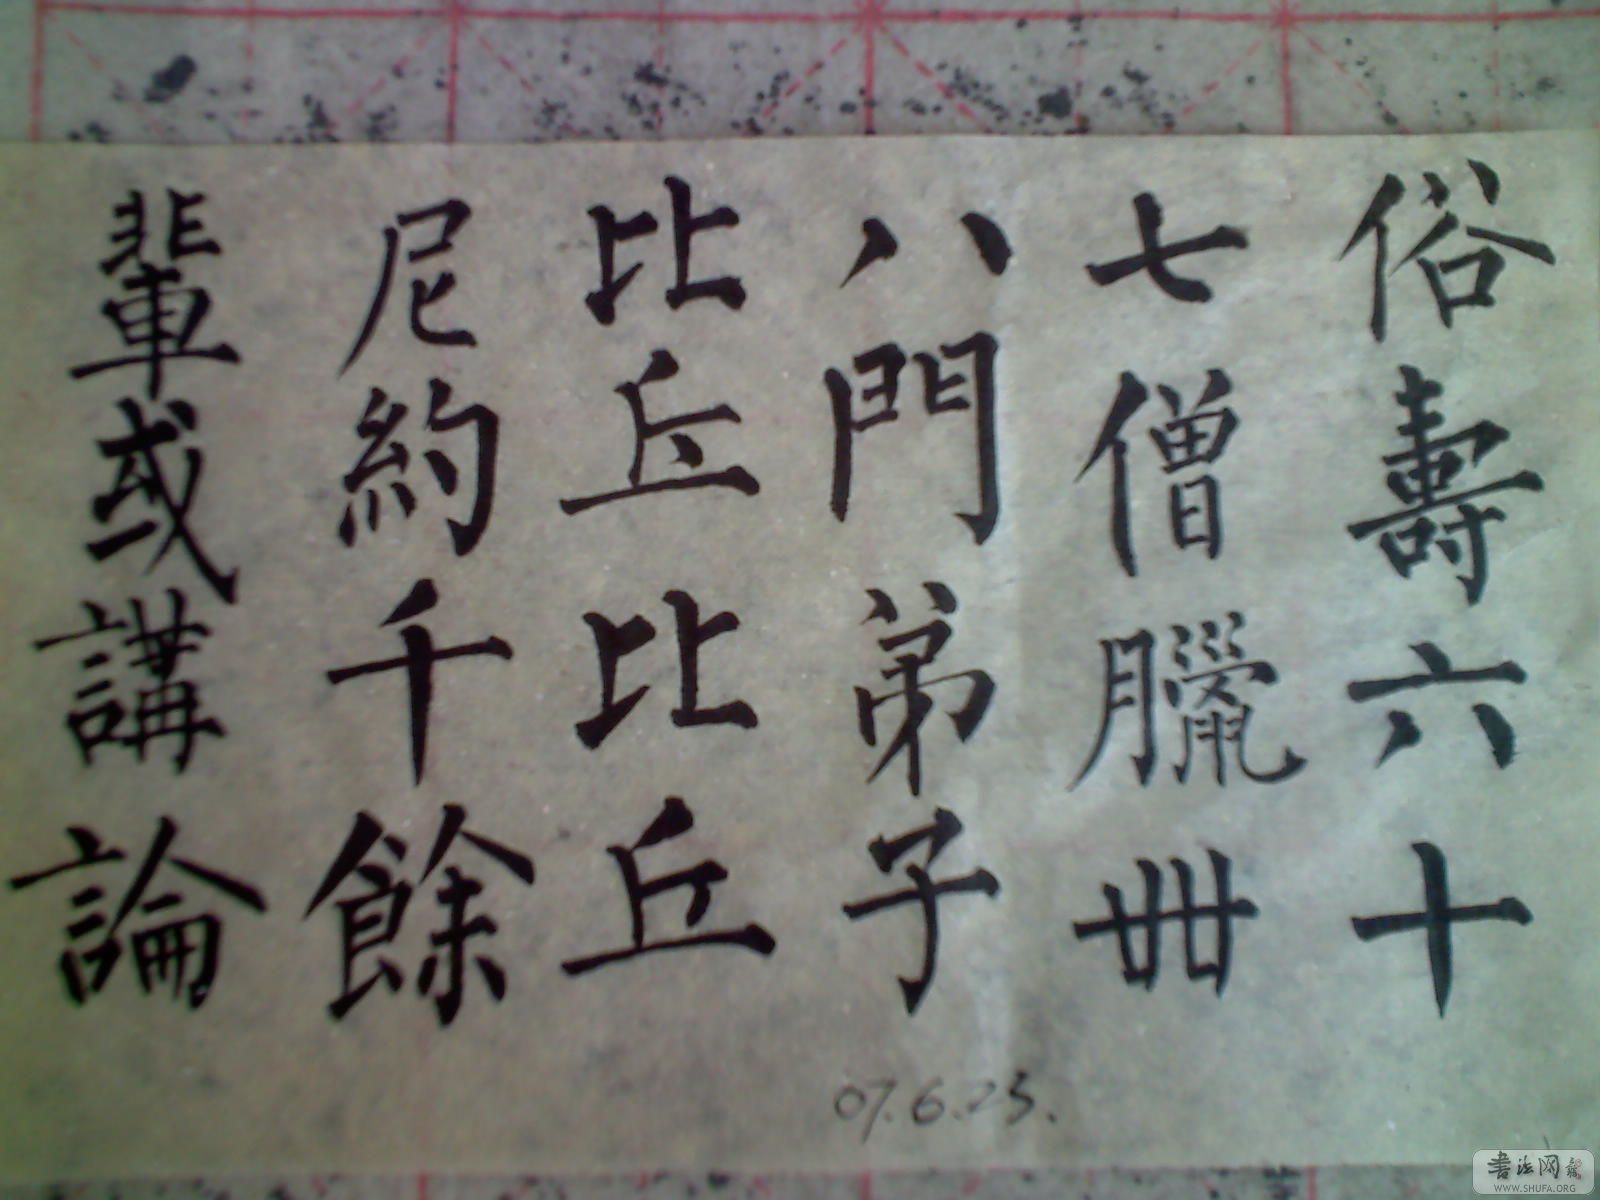 俗壽六十
七僧臘卌
八門弟子
比丘比丘
尼約千餘
輩或講論
07.6.25.
書法网
WWW.SHUFA.ORG